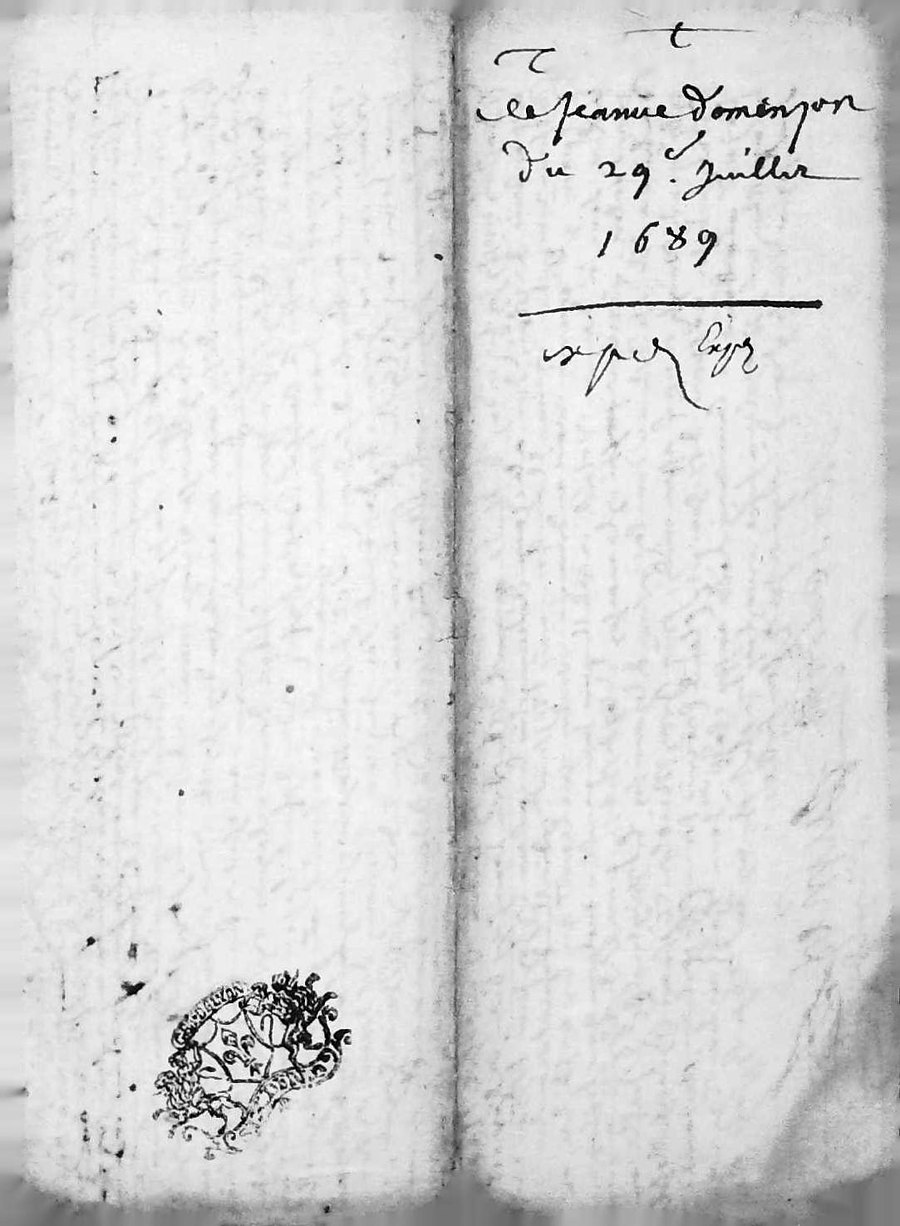 T
T
de Jeanne Domenjon
du 29e. Juillet
1689
exped Exped